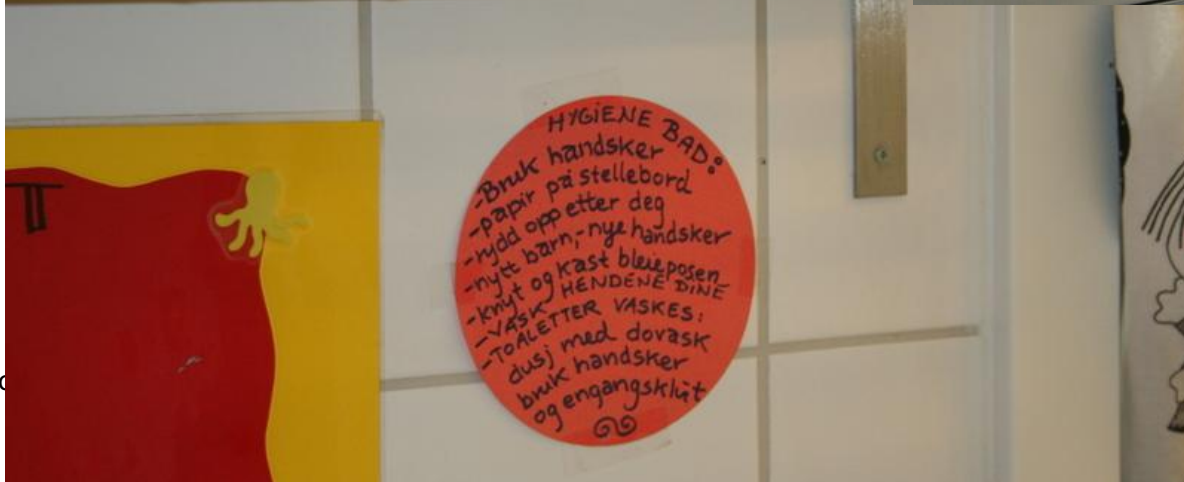 HYGiENE BAD:
-Bruk handsker
-papir på stellebord
-rydd opp etter deg
-nytt barn,-nye handsker
-knyt og kast bleieposen
-VASK HENDENE DINE
-TOALETTER VASKES:
dusj med dovask
bruk handsker
og engangsklut